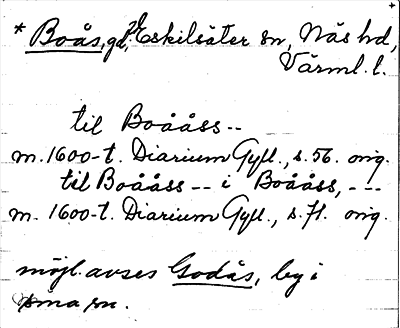 * Boås, gd, Eskilsäter sn, Näs hd,
Värml. l.
til Boååss --
m. 1600-t. Diarium Gyll., s. 56. orig.
til Boååss -- i Boååss, ---
m. 1600-t. Diarium Gyll., s. 71. orig.
möjl. avses Godås, by i
sma sn.